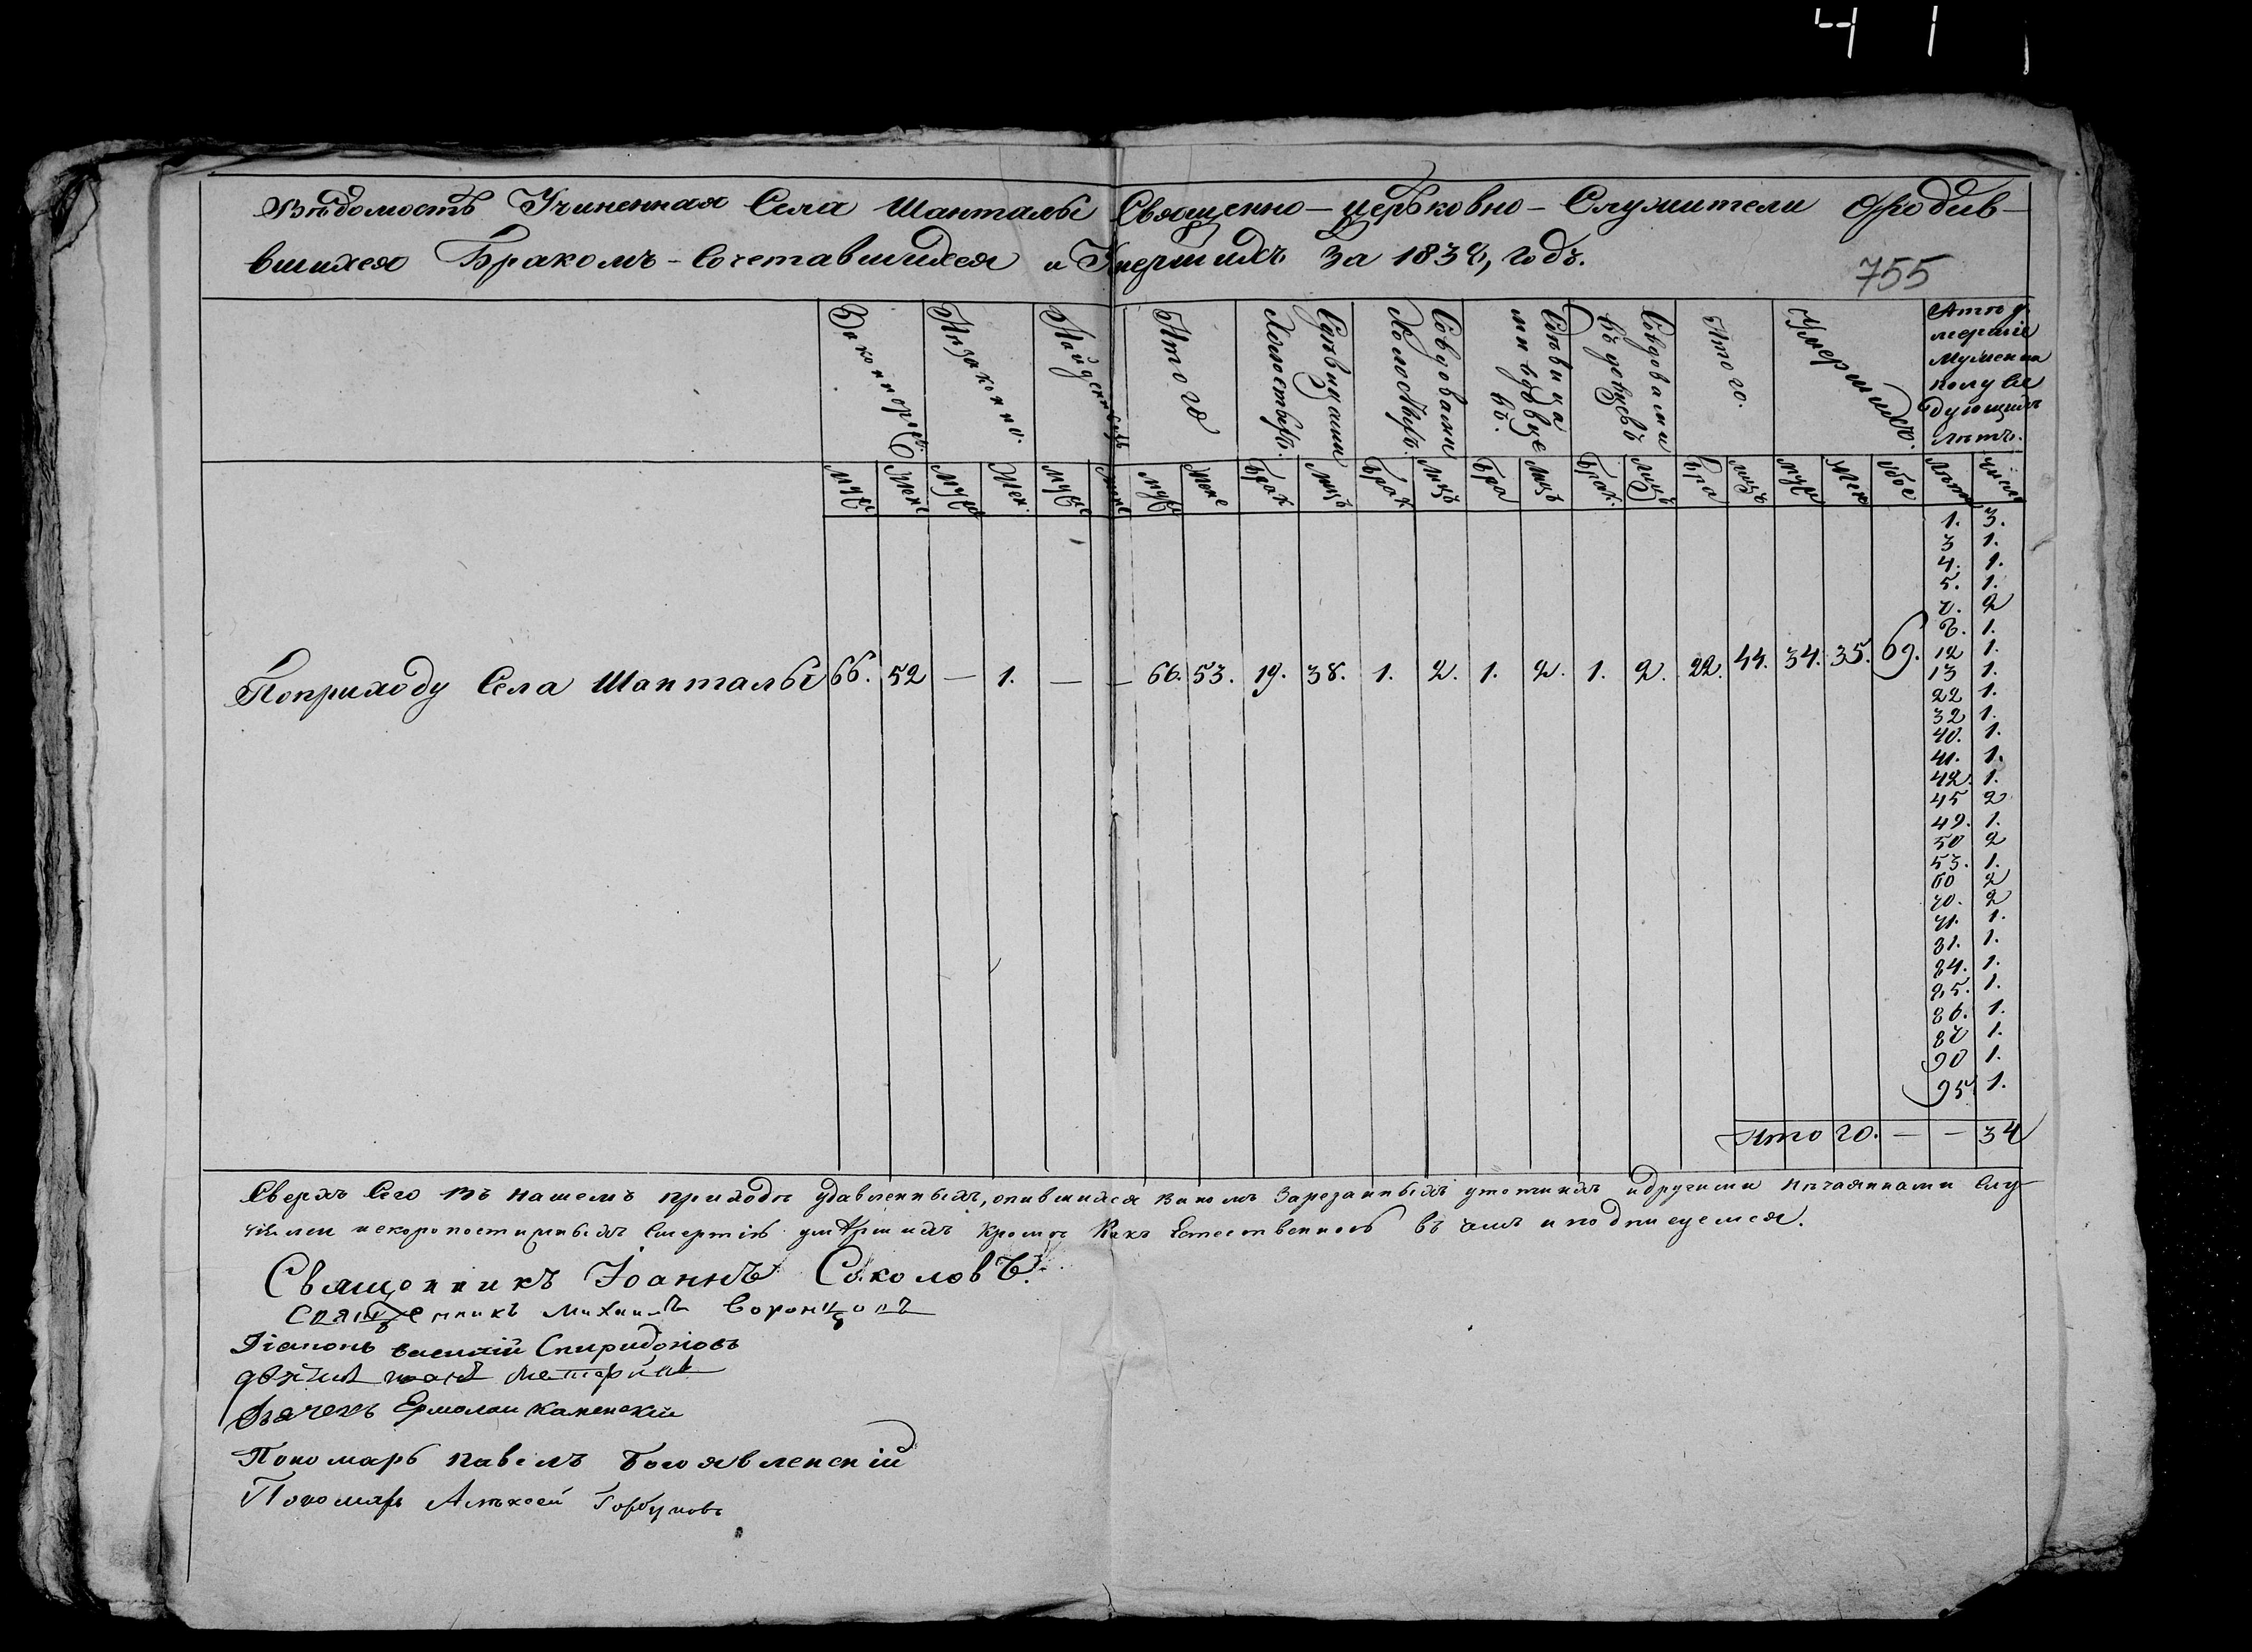 41
Вѣдомость Учиненная Села Шанталы Священно-церьковно-Служители Ородив-
вшихся Бракомъ-Сочетавшихся и Умершихъ За 1838, годъ.
755
Законнорож
Незаконно.
Найденныхъ
Итого
Сдѣвицами Холостыхъ.
Совдовами Холостыхъ.
Сдѣвица ми вдовце въ.
Совдовами Въ довцевъ
Итого.
Умершихъ.
Ктоу
мершіе
Мужеска
полу Сле
дующихъ
лѣтъ.
муже Жене Муже Жен. муже Жене муже Жене Брак лицъ Брак Лицъ Бра Лицъ Брак. лицъ Бра лицъ муж Жен обое лѣта число
Поприходу Села Шанталы 66. 52 — 1. — — 66. 53. 19. 38. 1. 2. 1. 2. 1. 2. 22. 44. 34. 35. 69.
1. 3.
3 1.
4. 1.
5. 1.
7. 2
8. 1.
12 1.
13 1.
22 1.
32 1.
40. 1.
41. 1.
42. 1.
45 2
49. 1.
50 2
53. 1.
60 2
70. 2
71. 1.
81. 1.
84. 1.
85. 1.
86. 1.
87 1.
90 1.
95. 1.
Итого. — — 34
Сверхъ Сего въ нашемъ приходѣ удавленныхъ, опившихся виномъ Зарезанныхъ утопшихъ идругими Нѣчаянными Слу-
чаями искоропостижныхъ Смертію умершихъ кромѣ Какъ Естественною въ чемъ иподписуемся.
Священникъ Іоаннъ Соколовъ.
Священникъ Михаилъ Воронцовъ
Діаконъ василій Спиридоновъ
Дьячекъ Ермолаи Каменскій
Пономарь Павелъ Богоявленскій
Пономарь Алексей Горбуновъ